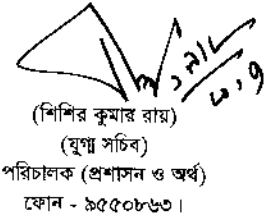 (শিশির কুমার রায়)
(যুগ্ম সচিব)
পরিচালক (প্রশাসন ও অর্থ)
ফোন - ৯৫৫০৮৬৩।